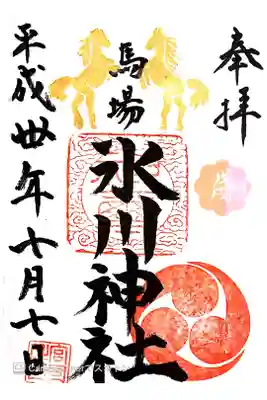 奉拝
馬場
氷川神社
平成卅年七月七日